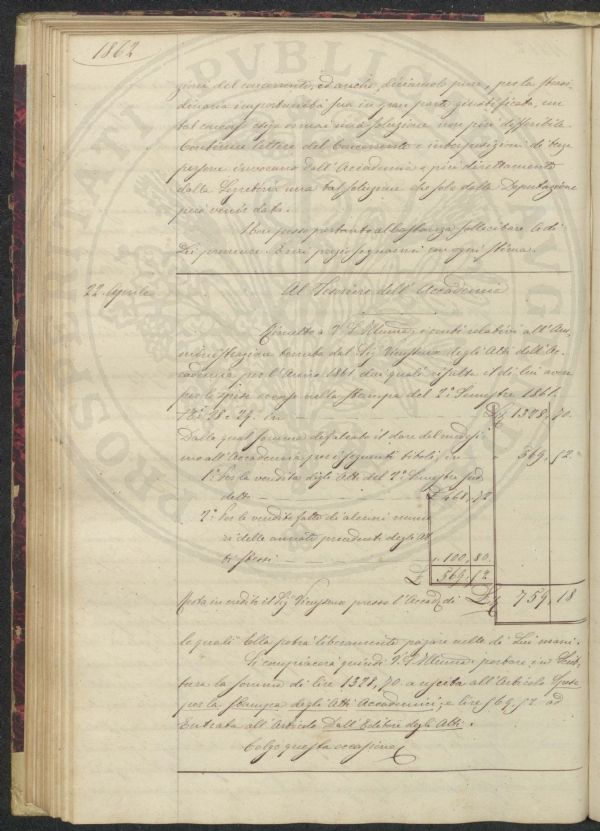 1862
zione del concorrente, ed anche, diciamolo pure, per la straor-
dinaria importunità sua in gran parte giustificata, un
tal concorso esige ormai una soluzione non più differibile.
Continue lettere del Concorrente e interposizioni di terze
persone invocano dall'Accademia e più direttamente
dalla Segreteria una tal soluzione che solo dalla Deputazione
può venir data.
sollecitare a di
Lei premure. Ed mi pregio segnarmi con ogni stima.
22. Aprile
Al Tesoriere dell'Accademia
Rimetto a V. S. Illma i conti relativi all'Am-
ministrazione tenuta dal Sig. Vieusseux degli Atti dell'Ac-
cademia per l'Anno 1861 dai quali risulta il di lui avere
per le spese occorse nella stampa del 2.° Semestre 1861.
28 e 29. in £ 1328,70.
Dalla qual somma defalcato il dare del medesi-
mo all'Accademia per i seguenti titoli. 569,52.
1.° Per la vendita degli Atti del 2.° Semestre sud-
detto £ 468,72
2.° Per le vendite fatte di alcuni nume-
ri delle annate precedenti degli At-
ti stessi 100,80.
£ 569,52
Resta in credito il Sig. Vieusseux presso l'Accad. di £ 759,18
le quali Ella potrà liberamente pagare nelle di Lui mani.
Si compiacerà quindi V. S. Illma portare in Scrit-
tura la somma di lire 1328,70 a uscita all'Articolo Spese
per la Stampa degli Atti Accademici; e lire 569,52 ad
Entrata all'Articolo Dall'Editore degli Atti.
Colgo questa occasione
PROSPERITATI PUBLICAE AUG